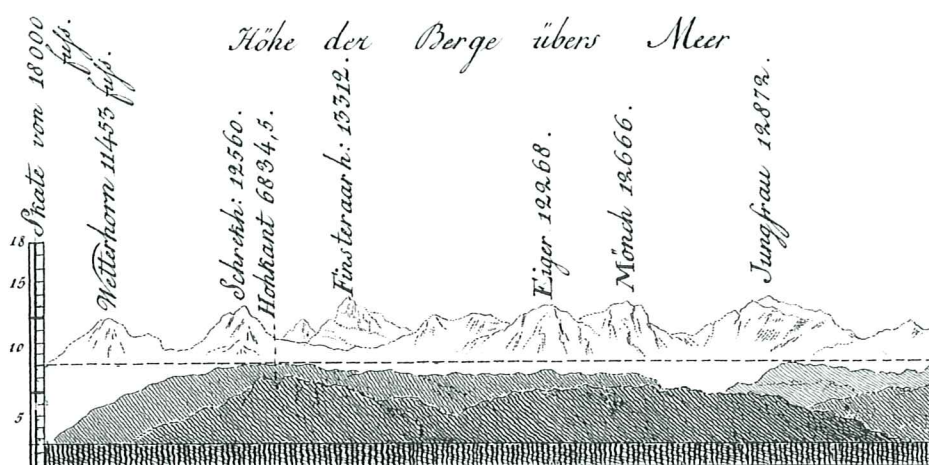 Höhe der Berge übers Meer
Skale von 18000 fuss.
Wetterhorn 11453 fuss.
Schrekh: 12560.
Hohkant 6834,5.
Finsteraarh: 13312.
Eiger 12268.
Mönch 12666.
Jungfrau 12872.
18
15
10
5